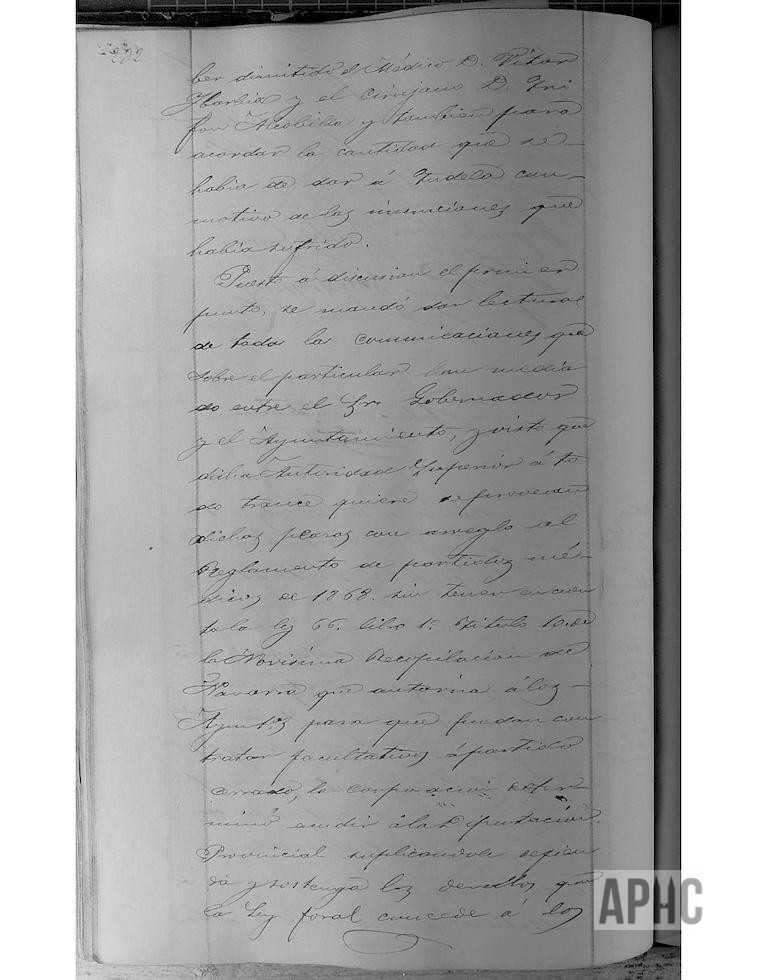 ber dimitido el Médico D. Vitor
Ybarbia y el cirujano D. Tri
fon Alcobilla y tambien para
acordar la cantidad que se
habia de dar á Tudela con
motivo de las inunciones que
habia sufrido.
Puesto á discusion el primer
punto, se mandó dar lectura
de todas las comunicaciones que
sobre el particular han media
do entre el Sr. Gobernador
y el Ayuntamiento, y visto que
dicha Autoridad Superior á to
do trance quiere se provean
dichas plazas con arreglo al
Reglamento de partidos mé-
dicos de 1868. sin tener en cuen
ta la ley 66. libro 1º. titulo 10. de
la Novisima Recopilacion de
Navarra que autoriza á los
Ayuntos para que puedan con
tratar facultativos á partido
cerrado, la Corporacion deter-
minó acudir á la Diputacion
Provincial suplicandole defien
da y sostenga los derechos que
la Ley foral concede á los
APHC